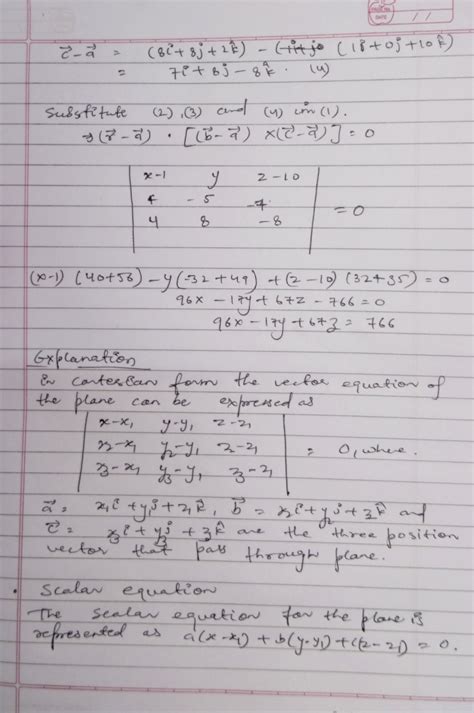 DATE / /
c⃗ - a⃗ = (8î + 8ĵ + 2k̂) - (1î + 0ĵ + 10k̂)
= 7î + 8ĵ - 8k̂. (4)
Substitute (2), (3) and (4) in (1).
⇒ (r⃗ - a⃗) · [(b⃗ - a⃗) × (c⃗ - a⃗)] = 0
| x-1 y z-10 |
| 4 -5 -7 | = 0
| 4 8 -8 |
(x-1) (40+56) - y(-32+49) + (z-10) (32+35) = 0
96x - 17y + 67z - 766 = 0
96x - 17y + 67z = 766
Explanation
in cartesian form the vector equation of
the plane can be expressed as
| x-x₁ y-y₁ z-z₁ |
| x₂-x₁ y₂-y₁ z₂-z₁ | = 0, where.
| x₃-x₁ y₃-y₁ z₃-z₁ |
a⃗ = x₁î + y₁ĵ + z₁k̂, b⃗ = x₂î + y₂ĵ + z₂k̂ and
c⃗ = x₃î + y₃ĵ + z₃k̂ are the three position
vector that pass through plane.
• Scalar equation
The scalar equation for the plane is
represented as a(x-x₁) + b(y-y₁) + c(z-z₁) = 0.